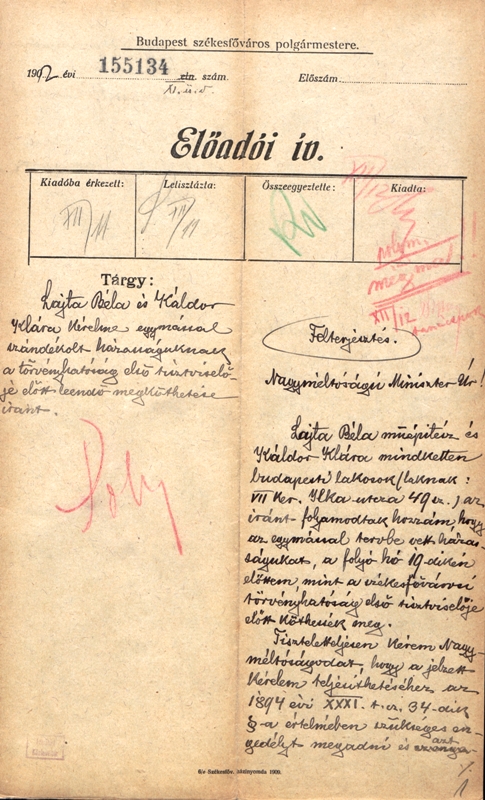 Budapest székesfőváros polgármestere.
1912 évi 155134 ein. szám. Előszám
XI. ü.o.
Előadói ív.
Kiadóba érkezett: Letisztázta: Összeegyeztette: Kiadta:
XII/11 XII/11 XII/12
polgm.
meg mai!
XII/12
Tárgy:
Lajta Béla és Káldor
Klára kérelme egymással
szándékolt házasságuknak
a törvényhatóság első tisztviselő-
je előtt leendő megköthetése
iránt.
Felterjesztés.
Nagyméltóságú Miniszter Úr!
Lajta Béla műépítész és
Káldor Klára mindketten
budapesti lakosok (laknak:
VII ker. Ilka utcza 49 sz.) az
iránt folyamodtak hozzám, hogy
az egymással tervbe vett házas-
ságukat, a folyó hó 19-dikén
előttem, mint a székesfővárosi
törvényhatóság első tisztviselője
előtt köthessék meg.
Tiszteletteljesen kérem Nagy-
méltóságodat, hogy a jelzett
kérelem teljesíthetéséhez az
1894 évi XXXI. t. cz. 34-dik
§-a értelmében szükséges en-
gedélyt megadni és azt
Székesfőv. házinyomda 1909.